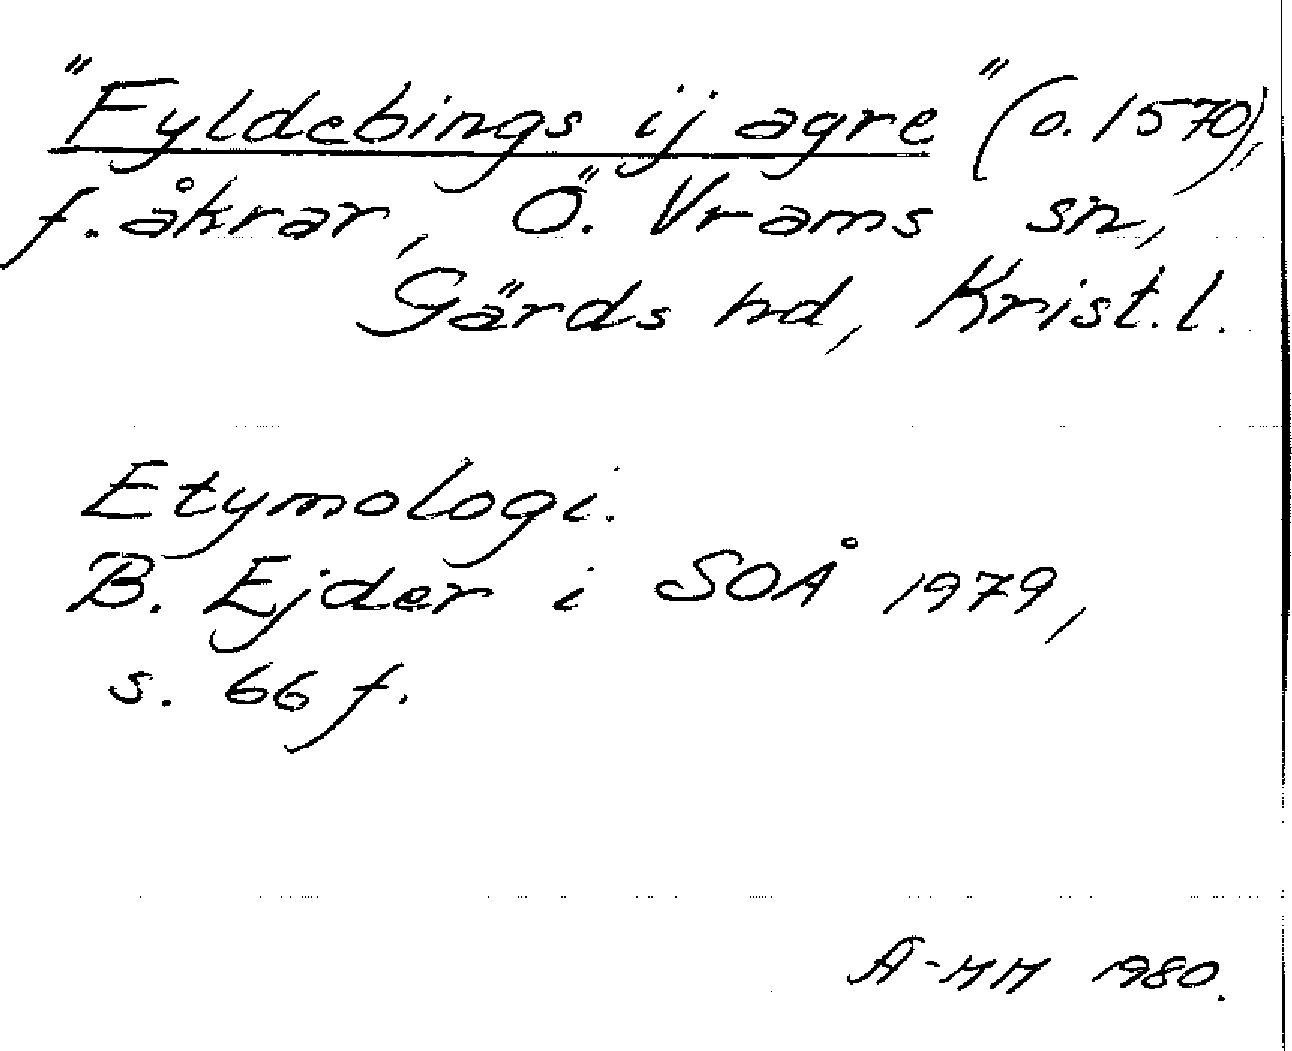 "Fyldebings ij agre" (o. 1570),
f. åkrar, Ö. Vrams sn,
Gärds hd, Krist. l.
Etymologi.
B. Ejder i SOÅ 1979,
s. 66 f.
A-MM 1980.